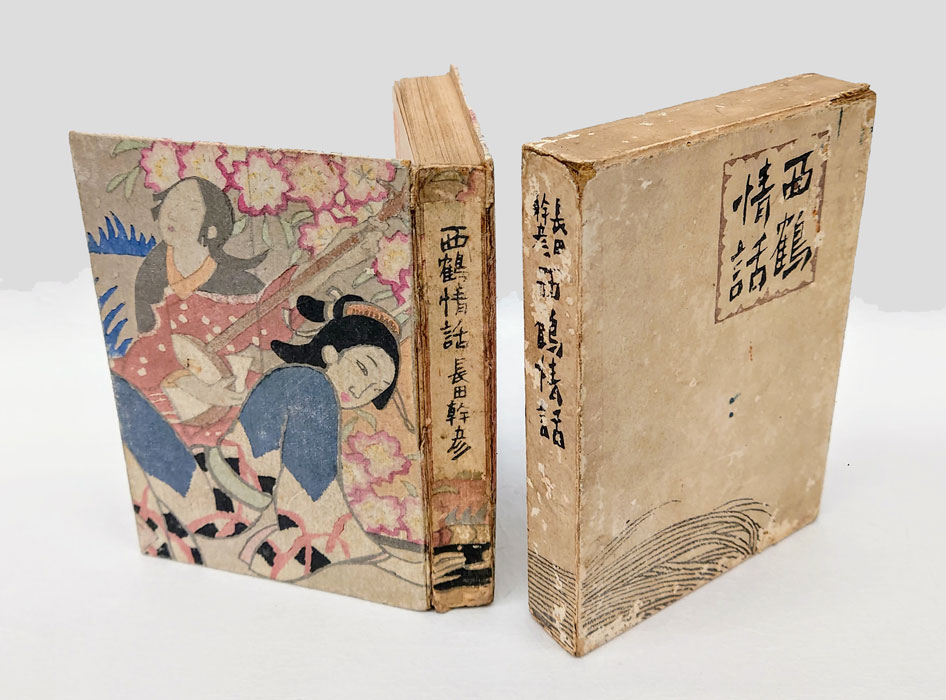 西鶴情話 長田幹彦
長田
幹彦
西鶴情話
西鶴
情話